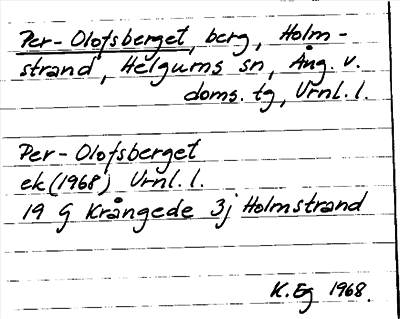 Per-Olofsberget, berg, Holm-
strand, Helgums sn, Ång. v.
doms. tg, Vrnl. l.
Per-Olofsberget
ek (1968) Vrnl. l.
19 G Krångede 3j Holmstrand
K. Eg 1968.